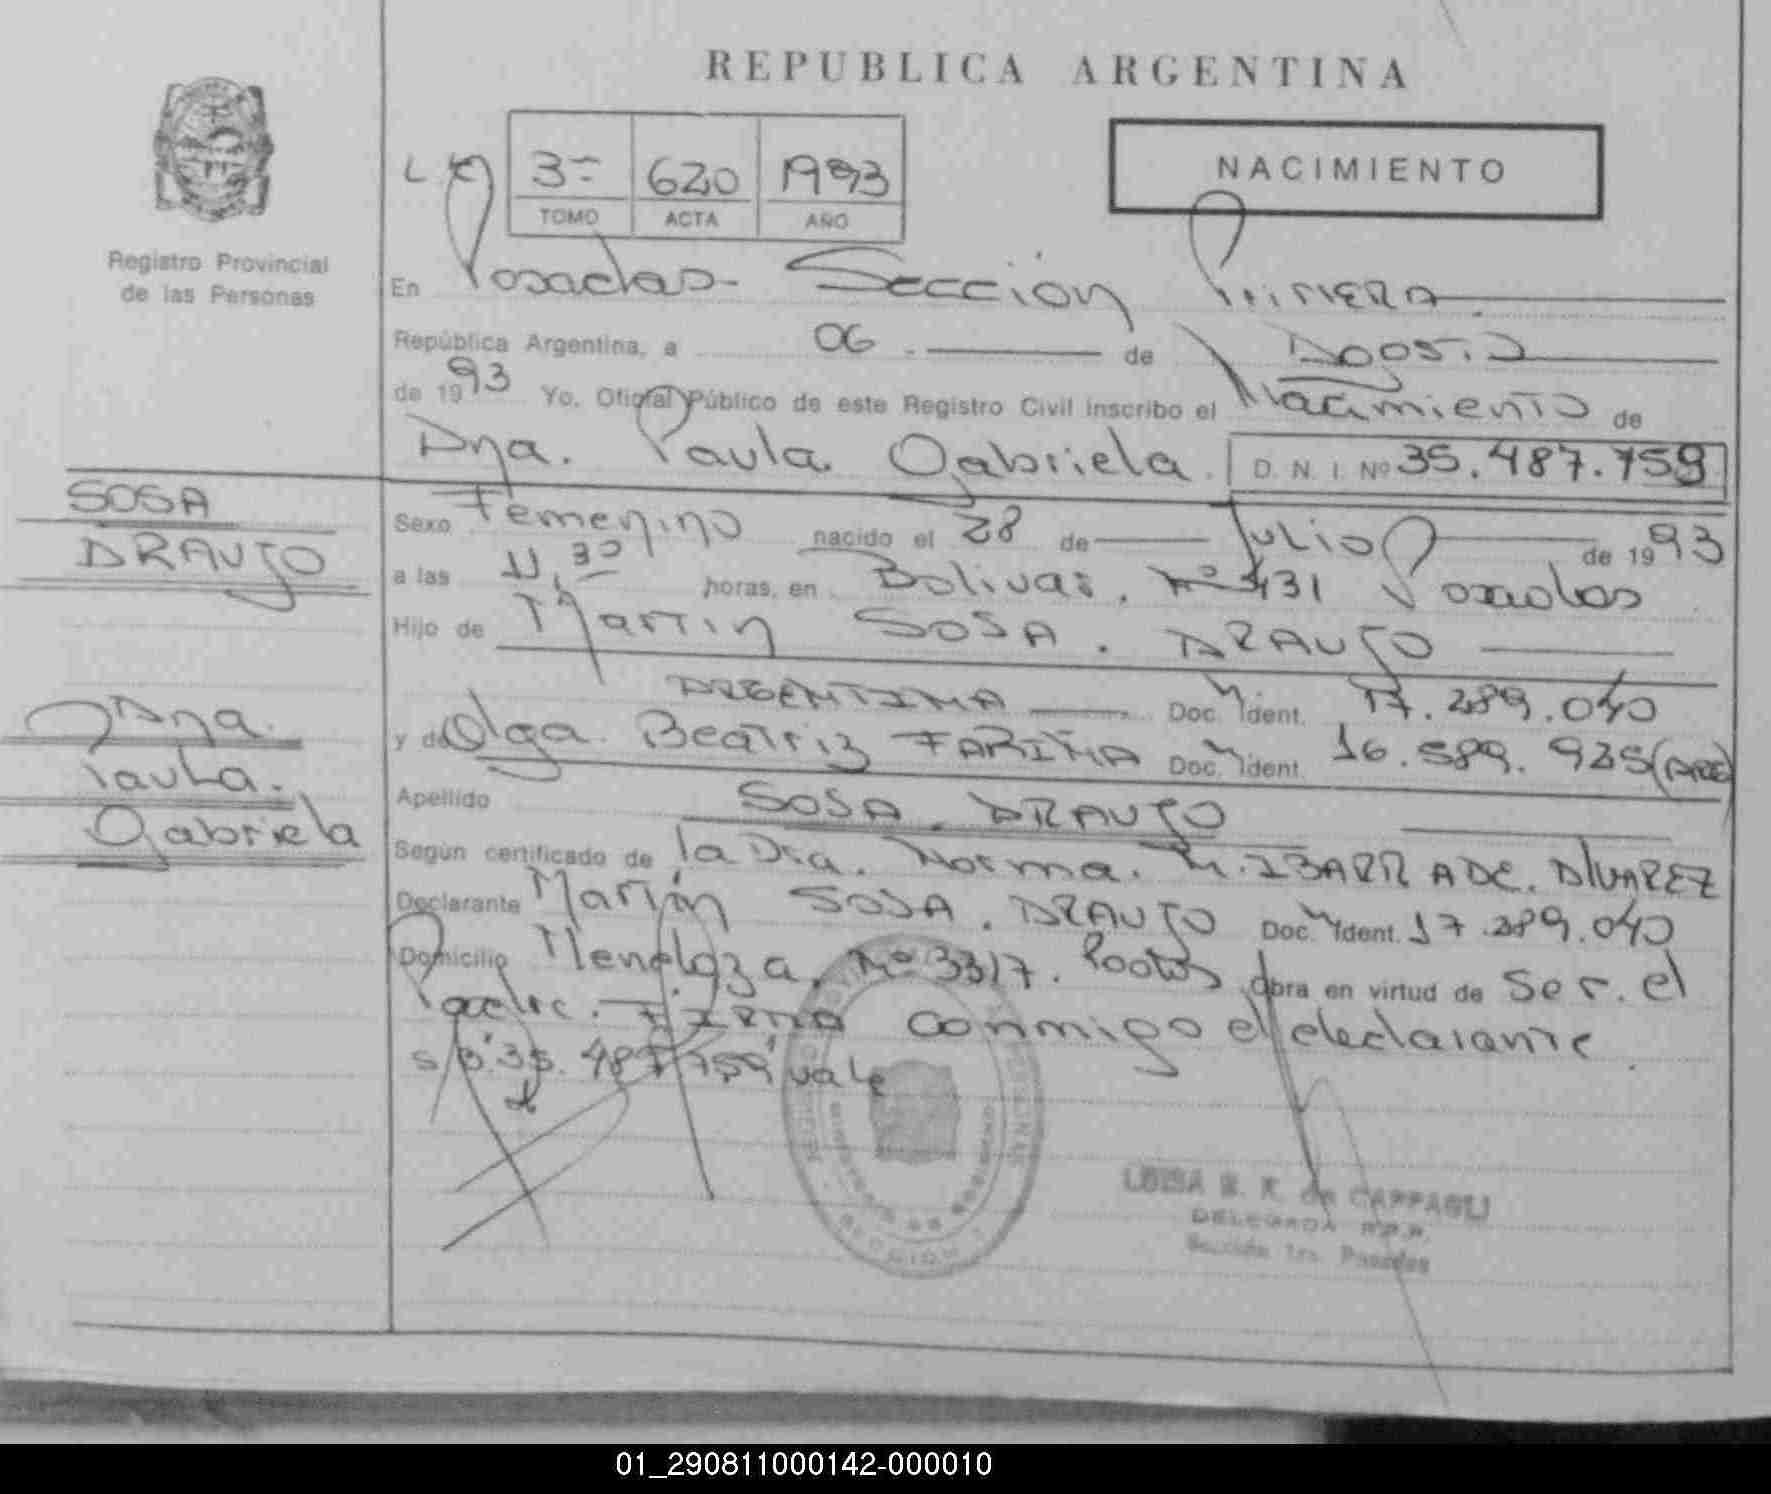 REPUBLICA ARGENTINA
NACIMIENTO
3= 620 1993
TOMO ACTA AÑO
Registro Provincial
de las Personas
En Posadas- Sección PriMERA.
República Argentina, a 06. de Agosto
de 1993 Yo, Oficial Público de este Registro Civil inscribo el Nacimiento de
Dña. Paula Gabriela. D. N. I. Nº 35.487.759
SOSA
ARAUJO
Dña.
Paula.
Gabriela
Sexo Femenino nacido el 28 de Julio de 1993
a las 11,30 horas, en Bolivar. Nº 431 Posadas
Hijo de Martin SOSA. ARAUJO
ARGENTINA Doc. Ident. 17.289.040
y de Olga Beatriz FARIÑA Doc. Ident. 16.589.925 (ARG)
Apellido SOSA. ARAUJO
Según certificado de la Dra. Norma. M. IBARRA DE. ALVAREZ
Declarante Martín SOSA. ARAUJO Doc. Ident. 17.289.040
Domicilio Mendoza, Nº 3317. Obra en virtud de Ser. el
Padre. FIRMA conmigo el declarante.
S/B: 35.487.759 vale
LUISA de
DELEGADA R.P.P.
Sección 1ra. Posadas
01_290811000142-000010